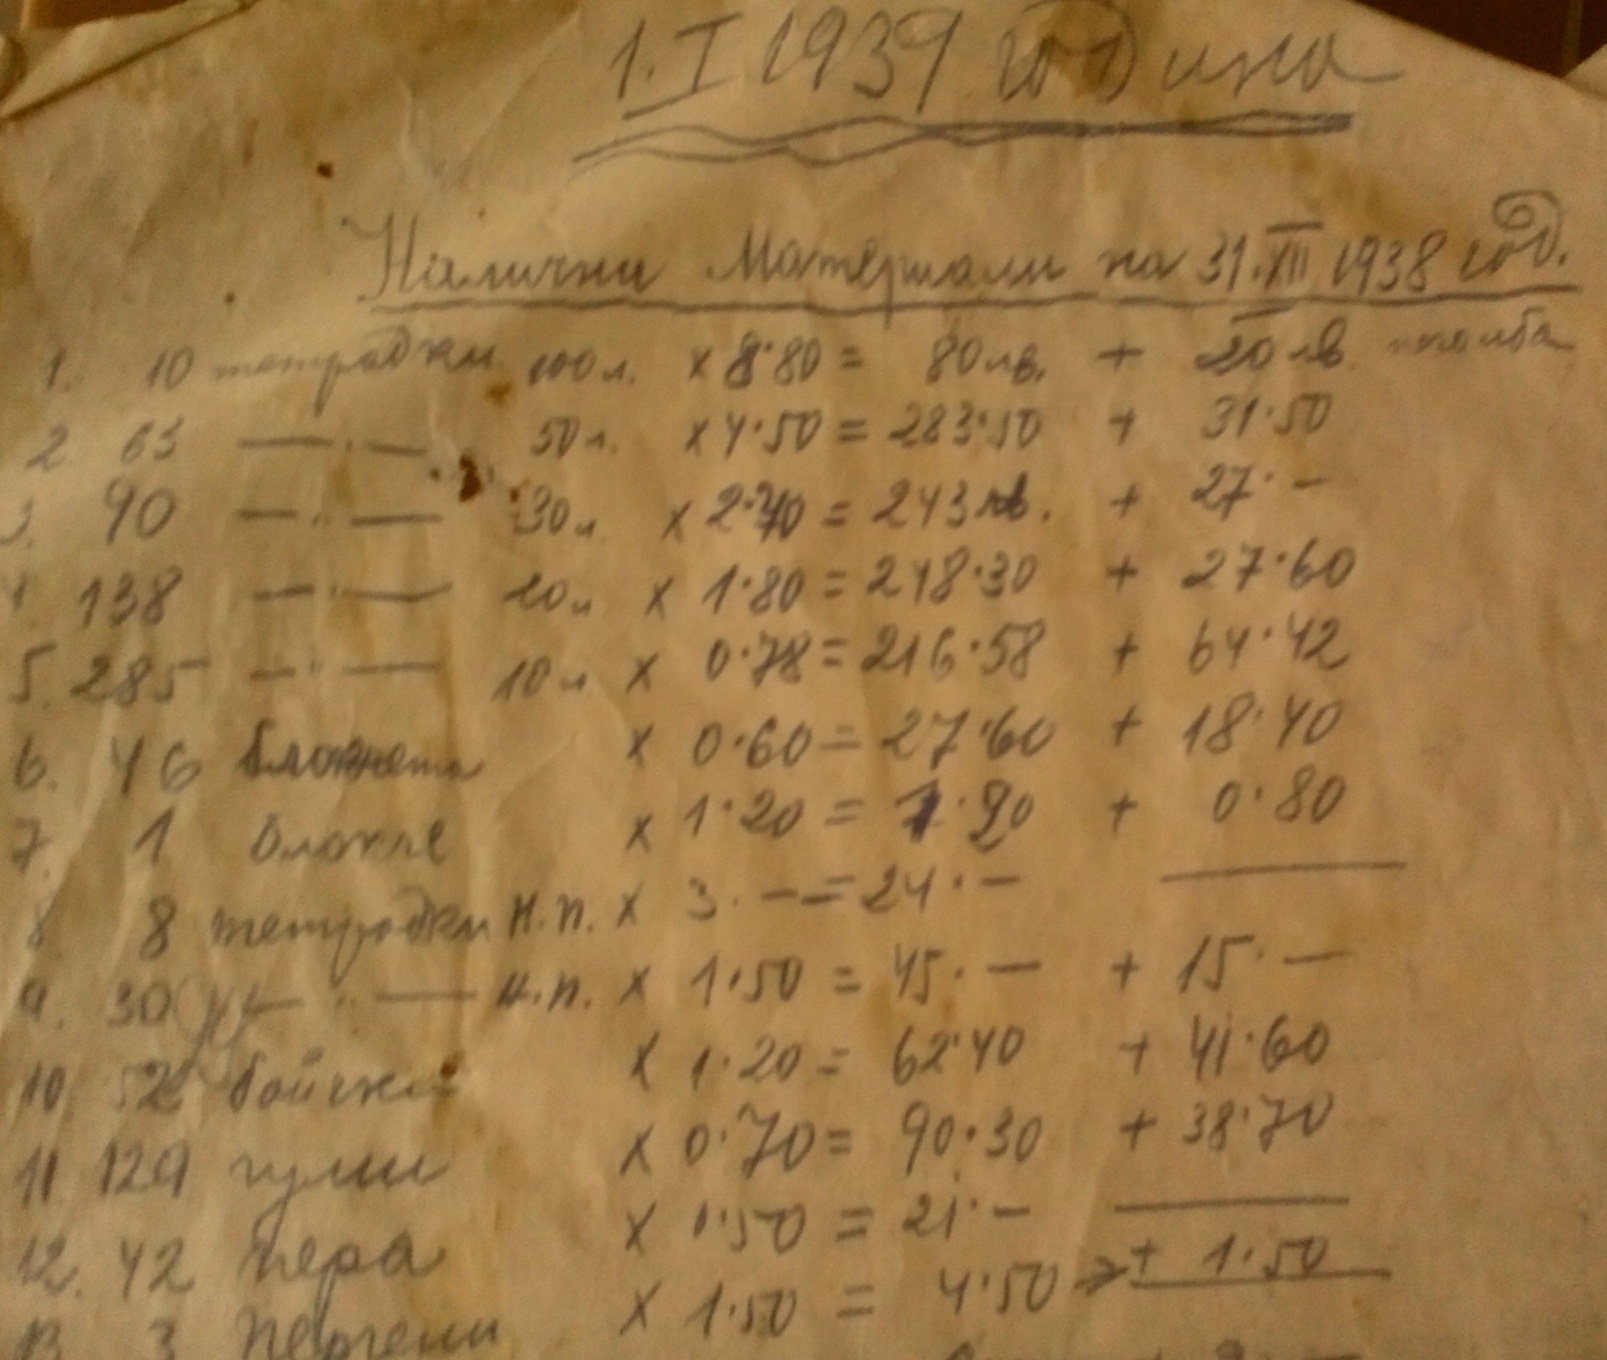 1. I 1939 година
Налични Материали на 31. XII 1938 год.
1. 10 тетрадки 100 л. x 8·80 = 80 лв. + 20 лв. печалба
2. 63 —·— 50 л. x 4·50 = 283·50 + 31·50
3. 90 —··— 30 л. x 2·70 = 243 лв. + 27·—
4. 138 —·— 20 л x 1·80 = 248·30 + 27·60
5. 285 —··— 10 л x 0·78 = 216·58 + 64·42
6. 46 блокчета x 0·60 = 27·60 + 18·40
7. 1 блокче x 1·20 = 1·20 + 0·80
8 8 тетрадки н.п. x 3.— = 24·— —
9. 30 —··— н.п. x 1·50 = 45·— + 15·—
10. 52 бойчки x 1·20 = 62·40 + 41·60
11. 129 гуми x 0·70 = 90·30 + 38·70
12. 42 пера x 0·50 = 21·— —
13 3 Пергели x 1·50 = 4·50 → + 1·50